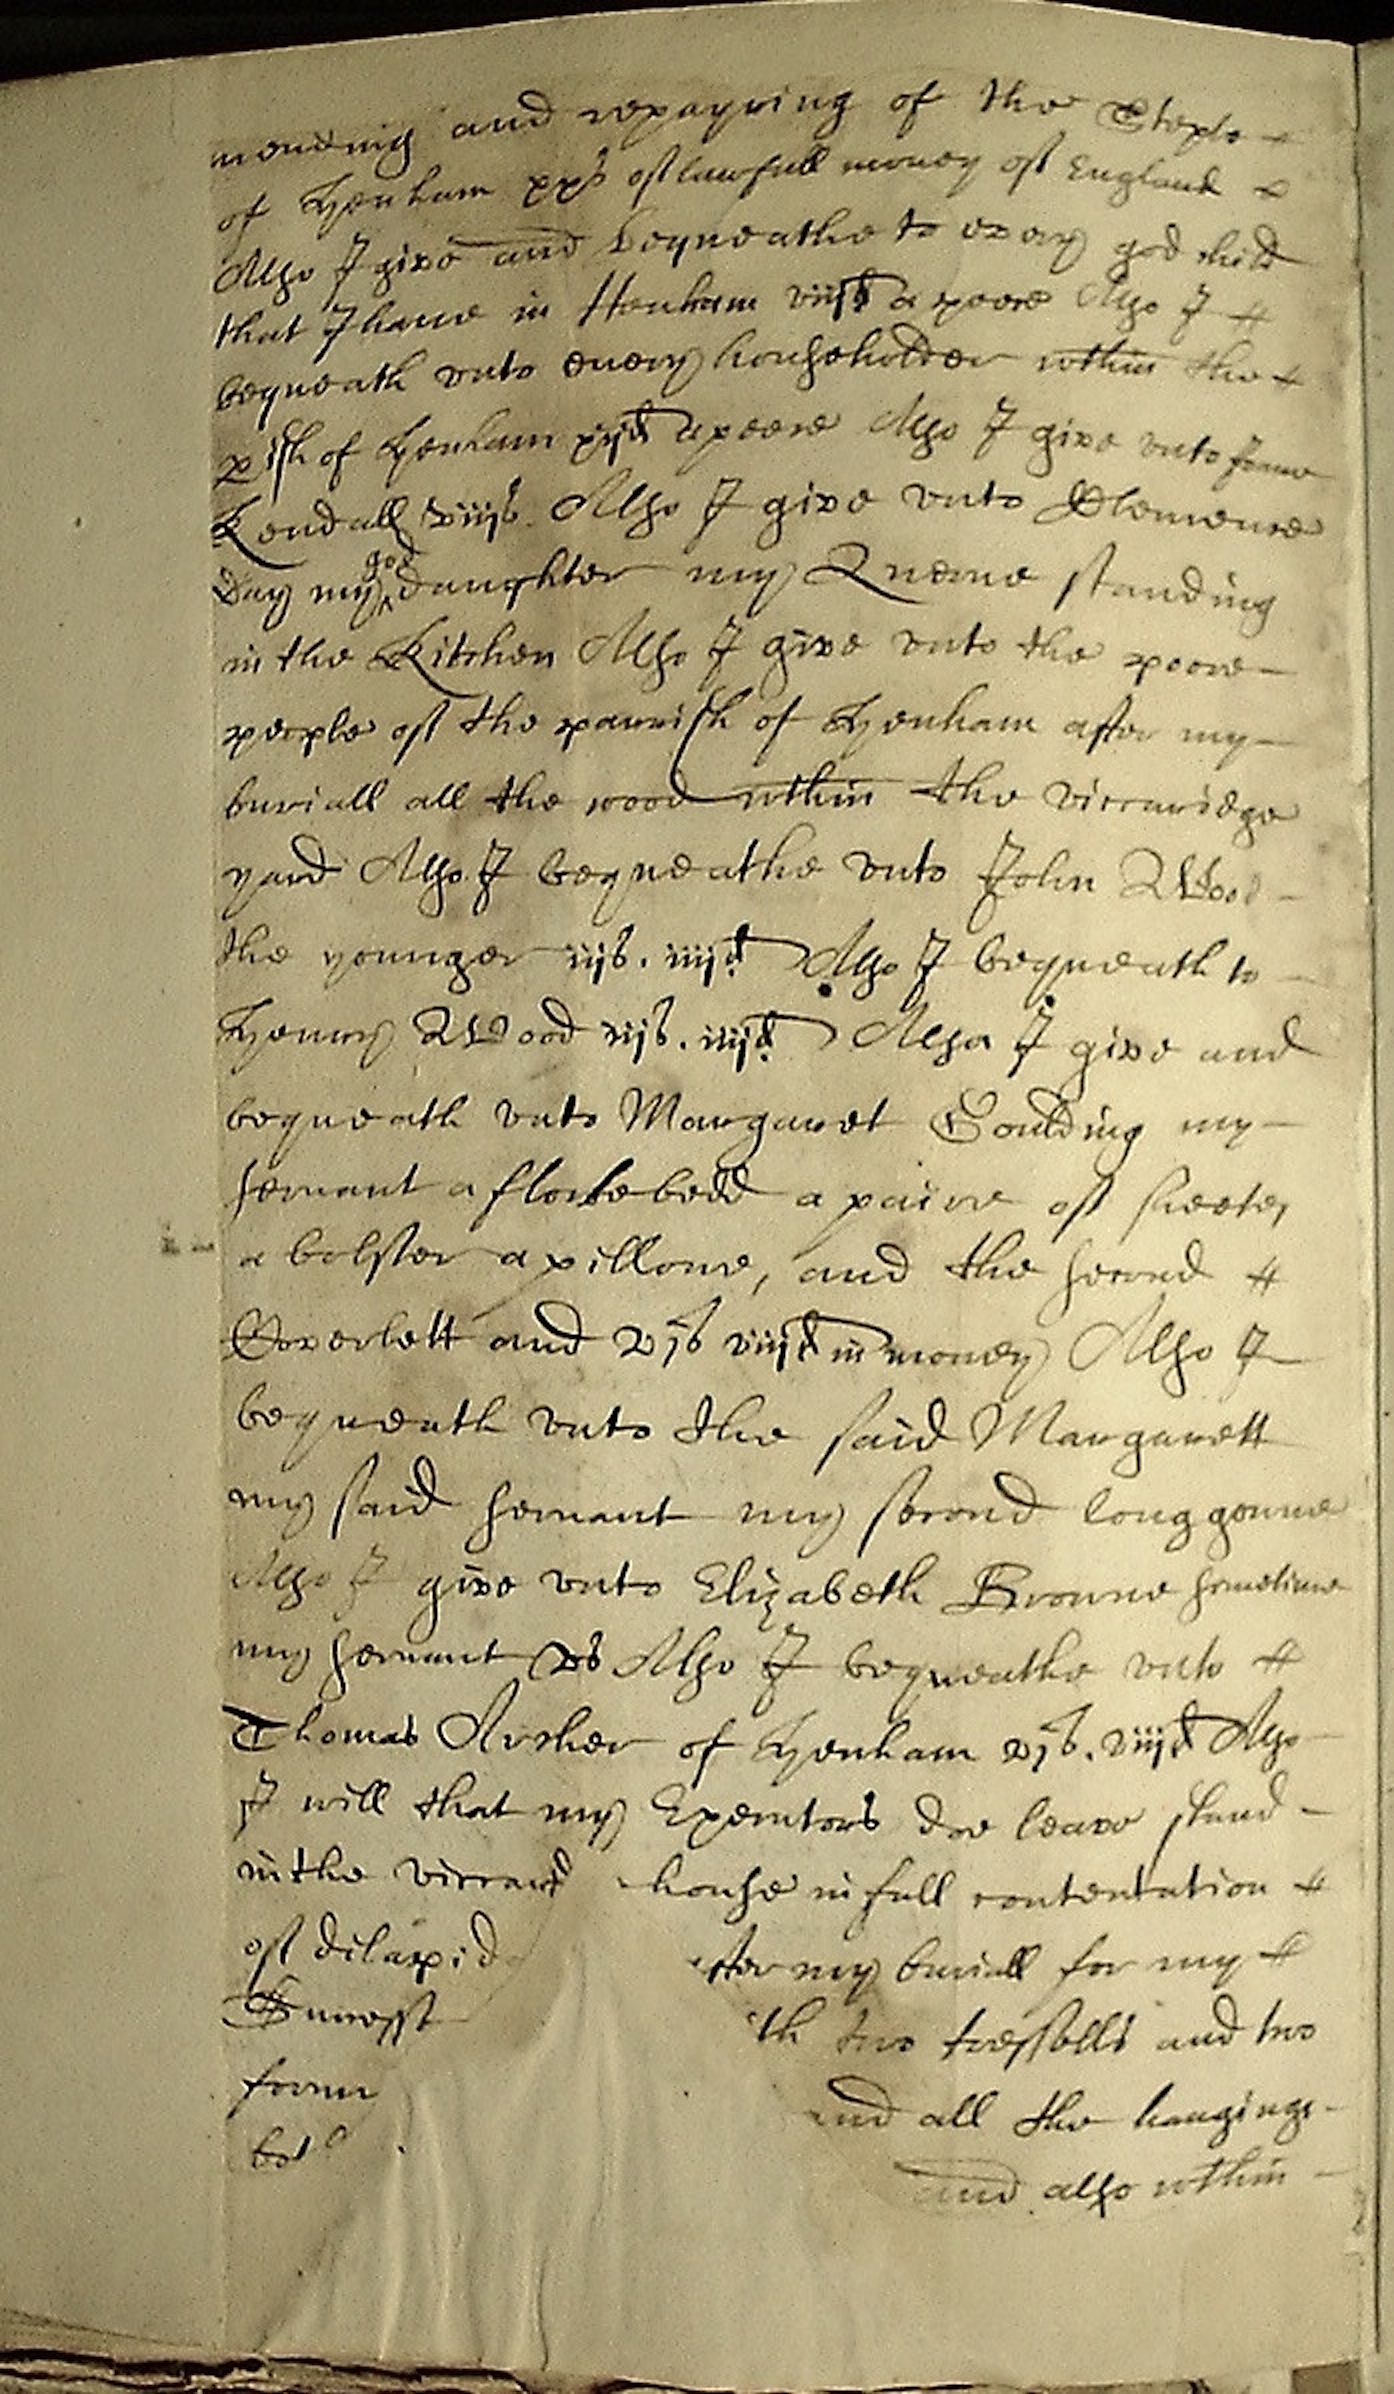 mending and repayring of the Steple
of Henham xxs of lawfull money of England
Also I give and bequeathe to every god child
that I haue in Henham viijd a peece Also I
bequeath vnto euery householder wthin the
pish of Henham xijd a peece Also I give vnto
Kendall Also I give vnto Clemence
Day my god daughter my Querne standing
in the Kitchen Also I give vnto the poore
people of the parrish of Henham after my
buriall all the wood wthin the viccaridge
yard Also I bequeathe vnto John Wood
the younger iijs. iiijd Also I bequeath to
Henry Wood iijs. iiijd Also I give and
bequeath vnto Margaret Goulding my
seruant a flockebedd a paire of sheetes
a bolster a pillowe, and the second
Coverlett and vjs viijd in money Also I
bequeath vnto the said Margarett
my said seruant my second long gowne
Also I give vnto Elizabeth Browne sometime
my seruant vs Also I bequeathe vnto
Thomas Archer of Henham vjs. viijd Also
I will that my Executors doe leave stand
in the viccard house in full contentation
of dilapid after my buriall for my
Success th two tressells and two
form and all the hangings
and also wthin